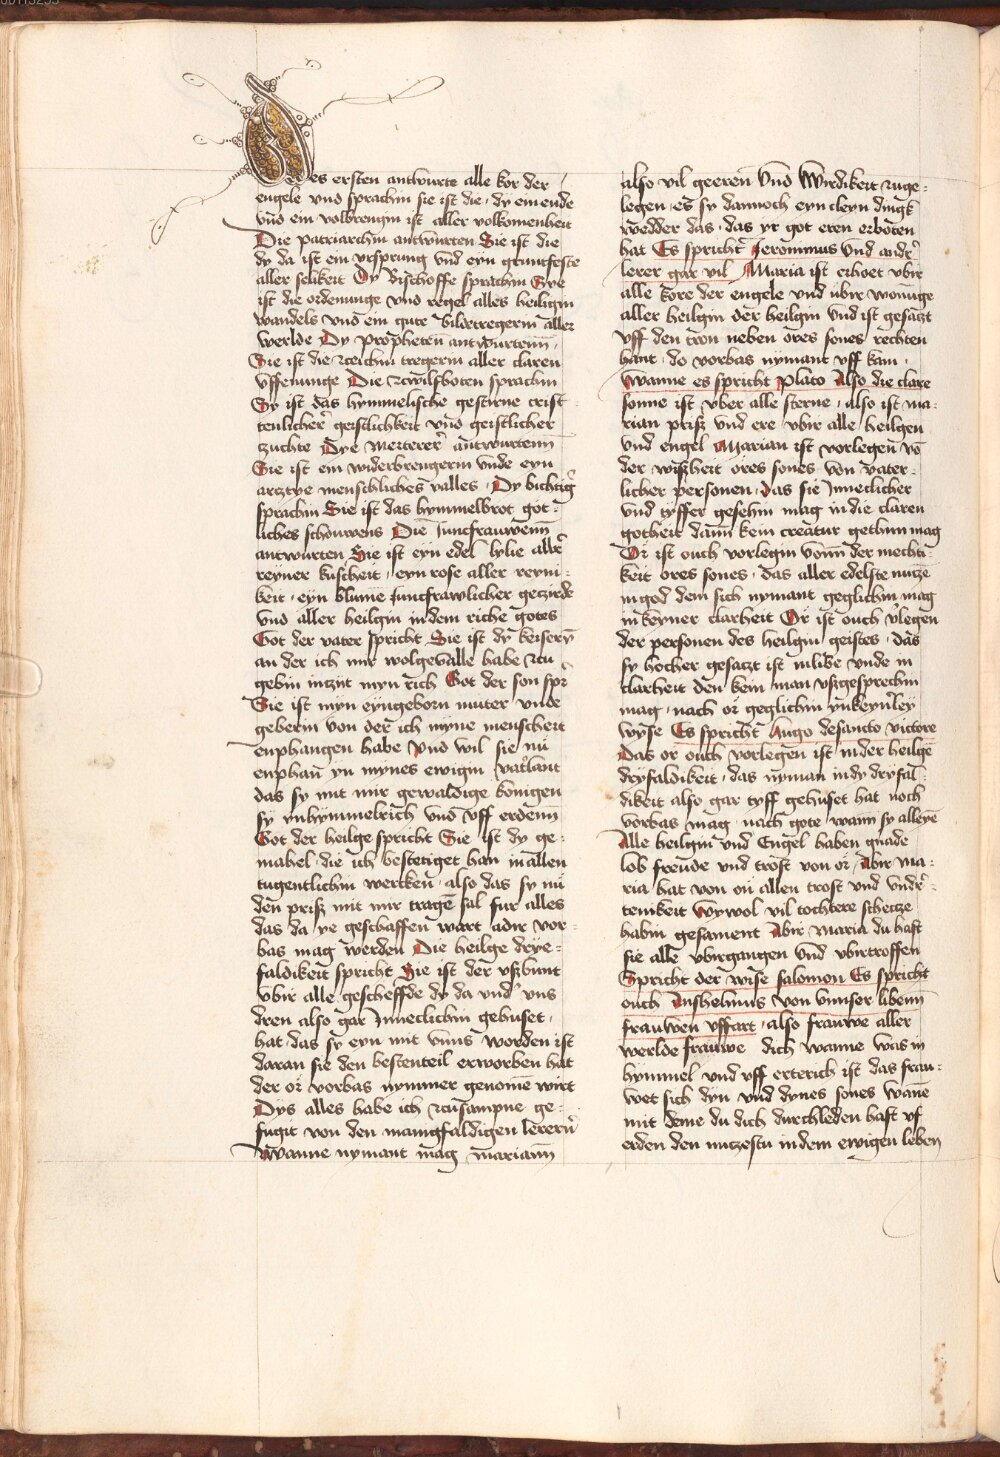 Des ersten antwurte alle kor der
engele vnd sprachin sie ist die · dy ein ende
vnd ein volbrengin ist aller volkomenheit
Die patriarchin antwurten Sie ist die
dy da ist ein vrsprung vnd eyn gruntfeste
aller selikeit Dy Bischoffe sprachin Sye
ist die ordenunge vnd regel alles heiligin
wandels vnd ein gute bildetregerin aller
werlde Dy propheten antwurtenn ·
Sie ist die zceichin tregerin aller claren
vffenunge Die zcwelfboten sprachin
Sy ist das hymmelische gestirne crist
tenlicher geistlichkeit vnd geistlicher
zuchte Dye merterer antwurtenn
Sie ist ein widerbrengerin vnde eyn
arcztye menschliches valles · Dy bichtiger
sprachin Sie ist das hymmelbrot got :
liches schouwens Die Juncfrauwenn
antwurten Sie ist eyn edel lylie aller
reyner kuscheit · eyn rose aller reyni :
keit · eyn blume Juncfrawlicher gezirde
vnd aller heilgin in dem riche gotes
Got der vater spricht Sie ist dy keisery̅
an der ich mir wolgevalle habe zcu
gebin in zyt myn rich Got der son spr
Sie ist myn eyngeborn muter vnde
geberin von der ich myne menscheit
enphangen habe vnd wil sie nu
enphan yn mynes ewigin vatirlant
das sy mit mir gewaldige konigen
sy ynhymmelrich vnd vff erdenn
Got der heilge spricht Sie ist dy ge :
mahel · die ich bestetiget han in allen
tugentlichin wercken · also das sy nu
den prisz mit mir trage̅ sal fur alles
das da ye geschaffen wart adir vor
bas mag werden Die heilge drye :
faldikeit spricht Sie ist der vszbunt
vbir alle gescheffde dy da vnd vns
dren also gar Inneclichin gehuset ·
hat · das sy eyn mit vnns worden ist
daran sie den bestenteil erworben hat
der or vorbas nymmer genome̅ wirt
Dys alles habe ich zcusampne ge :
fugit von den manigfaldigen lerern
Wanne nymant mag mariann
also vil geeren vnd Wirdikeit zuge :
legen · es sy dannoch eyn cleyn dingk
wedder das · das yr got eren erboten
hat Es spricht Jeronimus vnd andr
lerer gar vil Maria ist erhoet vbir
alle kore der engele vnd ubir wonu̅ge
aller heilgin der heilgin vnd ist gesatzt
vff den tron neben ores sones rechten
hant · do vorbas nymant vff kam ·
Wanne es spricht Plato Also die clare
sonne ist vber alle sterne · also ist ma :
rian prisz vnd ere vbir alle heilgen
vnd engel Marian ist vorlegen vo̅
der wiszheit ores sones von vater :
licher personen · das sie Inneclicher
vnd tyffer gesehin mag in die claren
gotheit dann kein creatur gethun mag
Or ist ouch vorlegin vonn der mechti ·
keit ores sones · das aller edelste nutze̅
in god dem sich nymant geglichin mag
in keyner clarheit Or ist ouch v̓legen
der personen des heilgin geistes · das
sy hocher gesatzt ist in libe vnde in
clarheit den kein man vszgesprechin
mag · nach or geglichin ynkeynerley
wyse Es spricht Hugo desancto victore
Das or ouch vorlegen ist in der heilge̅
dryfaldikeit · das nyman in dy dryfal :
dikeit also gar tyff gehuset hat noch
vorbas mag · nach gote wann sy alleyne̅
Alle heilgin vnd Engel haben gnade
lob freude vnd trost von or · Abir ma :
ria hat von on allen trost vnd vndr :
tenikeit Wywol vil tochtere schetze
habin gesament Abir maria du hast
sie alle vbirgangen vnd vbirtroffen
Spricht der wise salomon Es spricht
ouch Anshelmus von vnnser libenn
frauwen vffart · also frauwe aller
werlde frauwe dich wanne was in
hymmel vnd vff ertrich ist das frau :
wet sich dyn vnd dynes sones wane̅
mit deme du dich durchleden hast vf
erden den nutzestu in dem ewigen leben